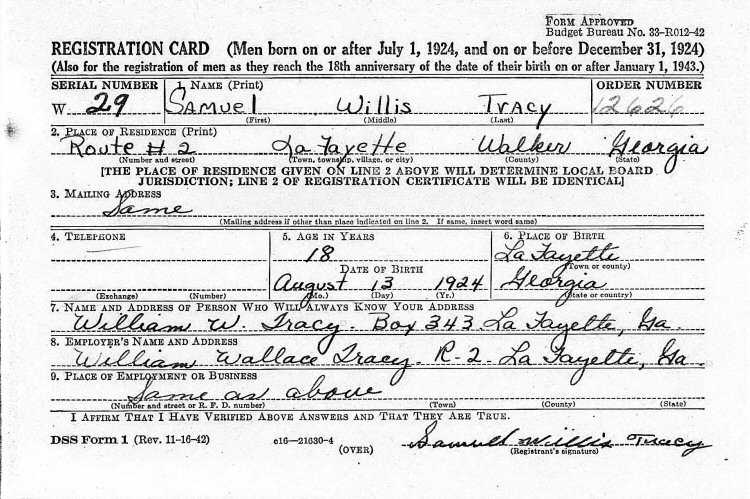 FORM APPROVED
Budget Bureau No. 33-R012-42
REGISTRATION CARD (Men born on or after July 1, 1924, and on or before December 31, 1924)
(Also for the registration of men as they reach the 18th anniversary of the date of their birth on or after January 1, 1943.)
SERIAL NUMBER 1. NAME (Print) ORDER NUMBER
W 29 SAMUEL Willis TRACY 12626
(First) (Middle) (Last)
2. PLACE OF RESIDENCE (Print)
Route # 2 La Fayette Walker Georgia
(Number and street) (Town, township, village, or city) (County) (State)
[THE PLACE OF RESIDENCE GIVEN ON LINE 2 ABOVE WILL DETERMINE LOCAL BOARD
JURISDICTION; LINE 2 OF REGISTRATION CERTIFICATE WILL BE IDENTICAL]
3. MAILING ADDRESS
Same
(Mailing address if other than place indicated on line 2. If same, insert word same)
4. TELEPHONE 5. AGE IN YEARS 6. PLACE OF BIRTH
18 La Fayette
DATE OF BIRTH (Town or county)
August 13 1924 Georgia
(Exchange) (Number) (Mo.) (Day) (Yr.) (State or country)
7. NAME AND ADDRESS OF PERSON WHO WILL ALWAYS KNOW YOUR ADDRESS
William W. Tracy. Box 343 La Fayette, Ga.
8. EMPLOYER'S NAME AND ADDRESS
William Wallace Tracy. R-2. La Fayette, Ga.
9. PLACE OF EMPLOYMENT OR BUSINESS
Same as above
(Number and street or R. F. D. number) (Town) (County) (State)
I AFFIRM THAT I HAVE VERIFIED ABOVE ANSWERS AND THAT THEY ARE TRUE.
DSS Form 1 (Rev. 11-16-42) c16—21630-4 Samuel Willis Tracy
(OVER) (Registrant's signature)